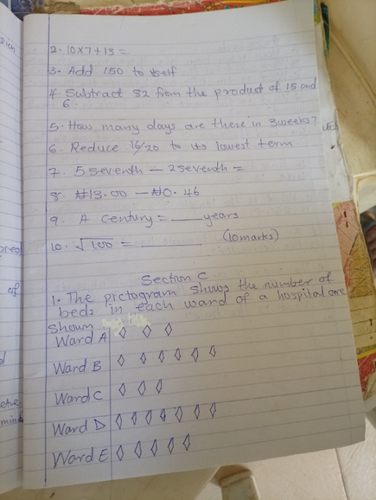 2. 10x7+13 =
3. Add 150 to itself
4. Subtract 32 from the product of 15 and
6.
5. How many days are there in 3 weeks?
6. Reduce 16/20 to its lowest term
7. 5 seventh — 2 seventh =
8. ₦13.00 — ₦0.46
9. A Century = ___ years
10. √100 = ______ (10marks)
Section C
1. The pictogram shows the number of
beds in each ward of a hospital are
Shown
Ward A ◊ ◊ ◊
Ward B ◊ ◊ ◊ ◊ ◊ ◊
Ward C ◊ ◊ ◊
Ward D ◊ ◊ ◊ ◊ ◊ ◊ ◊
Ward E ◊ ◊ ◊ ◊ ◊